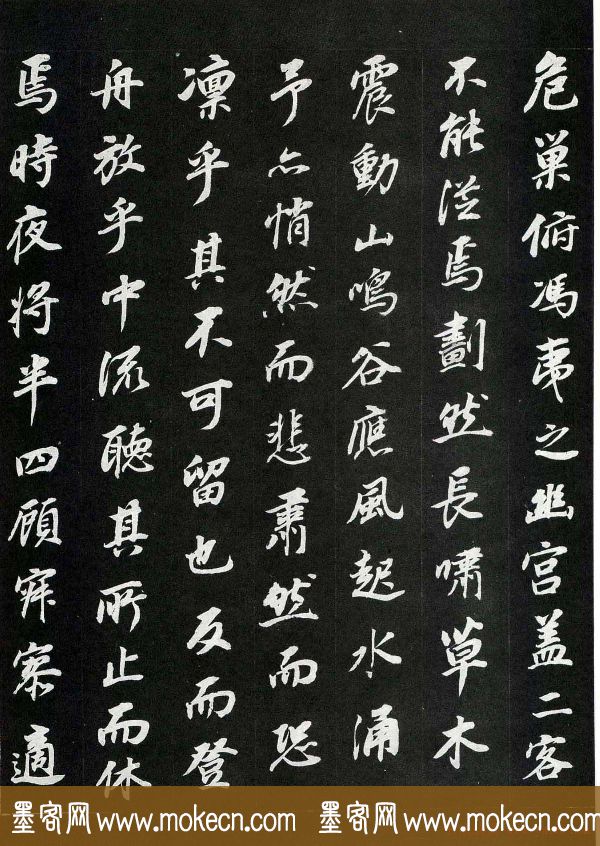 危巢俯馮夷之幽宫盖二客
不能從焉劃然長嘯草木
震動山鳴谷應風起水涌
予亦悄然而悲肅然而恐
凛乎其不可留也反而登
舟放乎中流聽其所止而休
焉時夜将半四顧寂寥適
墨客网 www.mokecn.com 墨客网 www.mokecn.com